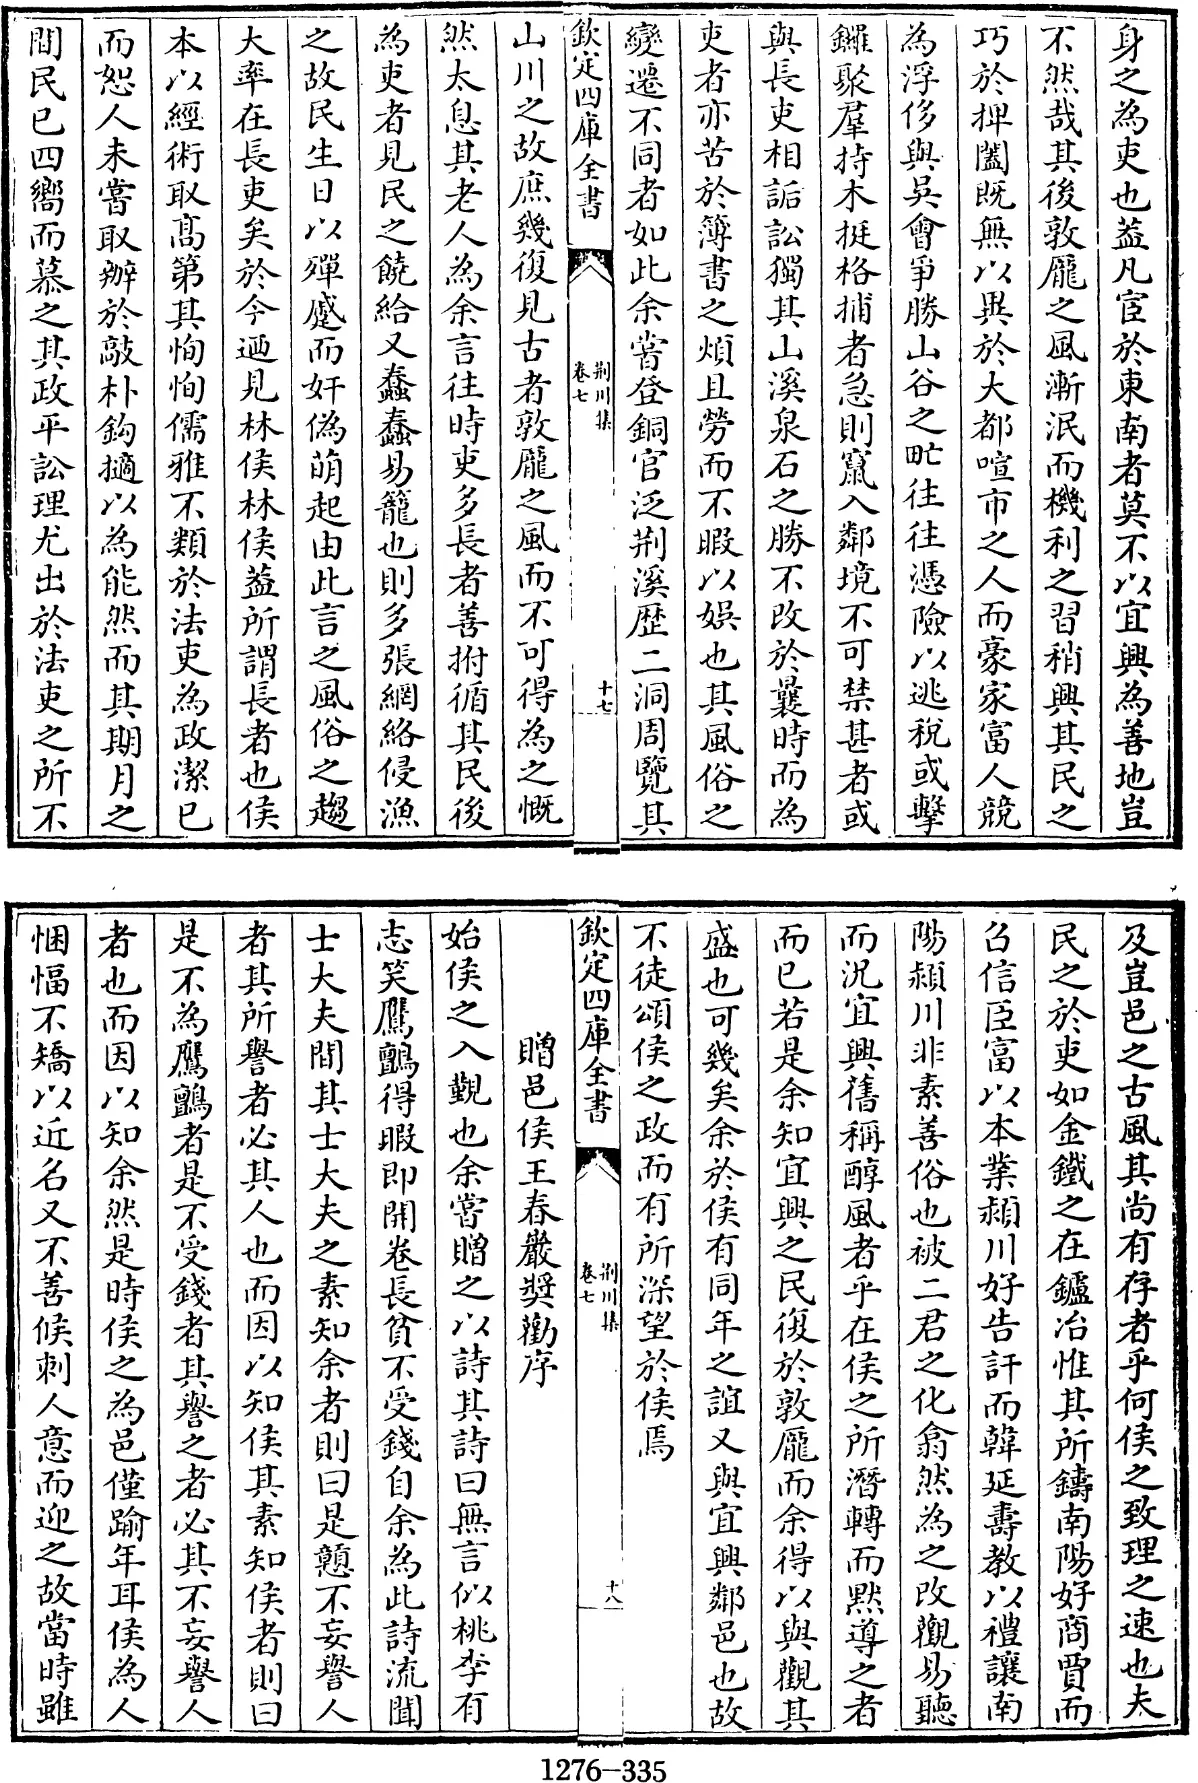 身之為吏也葢凡宦於東南者莫不以宜興為善地豈
不然哉其後敦龐之風漸泯而機利之習稍興其民之
巧於捭闔既無以異於大都喧市之人而豪家富人競
為浮侈與吳會爭勝山谷之甿往往憑險以逃稅或擊
鑼聚羣持木挺格捕者急則竄入鄰境不可禁甚者或
與長吏相詬訟獨其山溪泉石之勝不改於曩時而為
吏者亦苦於簿書之煩且勞而不暇以娛也其風俗之
變遷不同者如此余嘗登銅官泛荆溪歴二洞周覽其
欽定四庫全書
荆川集
卷七
十七
山川之故庶幾復見古者敦龐之風而不可得為之慨
然太息其老人為余言往時吏多長者善拊循其民後
為吏者見民之饒給又蠢蠢易籠也則多張網絡侵漁
之故民生日以殫蹙而奸偽萌起由此言之風俗之趨
大率在長吏矣於今廼見林侯林侯葢所謂長者也侯
本以經術取高第其恂恂儒雅不類於法吏為政潔已
而恕人未嘗取辦於敲朴鈎擿以為能然而其期月之
間民已四嚮而慕之其政平訟理尤出於法吏之所不
及豈邑之古風其尚有存者乎何侯之致理之速也夫
民之於吏如金鐵之在鑪冶惟其所鑄南陽好商賈而
召信臣富以本業潁川好告訐而韓延壽教以禮讓南
陽潁川非素善俗也被二君之化翕然為之改觀易聽
而況宜興舊稱醇風者乎在侯之所潛轉而黙導之者
而已若是余知宜興之民復於敦龐而余得以與觀其
盛也可幾矣余於侯有同年之誼又與宜興鄰邑也故
不徒頌侯之政而有所深望於侯焉
欽定四庫全書
荆川集
卷七
十八
贈邑侯王春巖奬勸序
始侯之入覲也余嘗贈之以詩其詩曰無言似桃李有
志笑鷹鸇得暇即開卷長貧不受錢自余為此詩流聞
士大夫間其士大夫之素知余者則曰是戇不妄譽人
者其所譽者必其人也而因以知侯其素知侯者則曰
是不為鷹鸇者是不受錢者其譽之者必其不妄譽人
者也而因以知余然是時侯之為邑僅踰年耳侯為人
悃愊不矯以近名又不善候刺人意而迎之故當時雖
1276—335